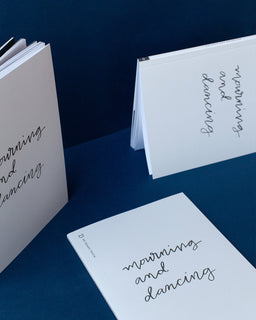 mourning
and
dancing
mourning
and
dancing
mourning
and
dancing